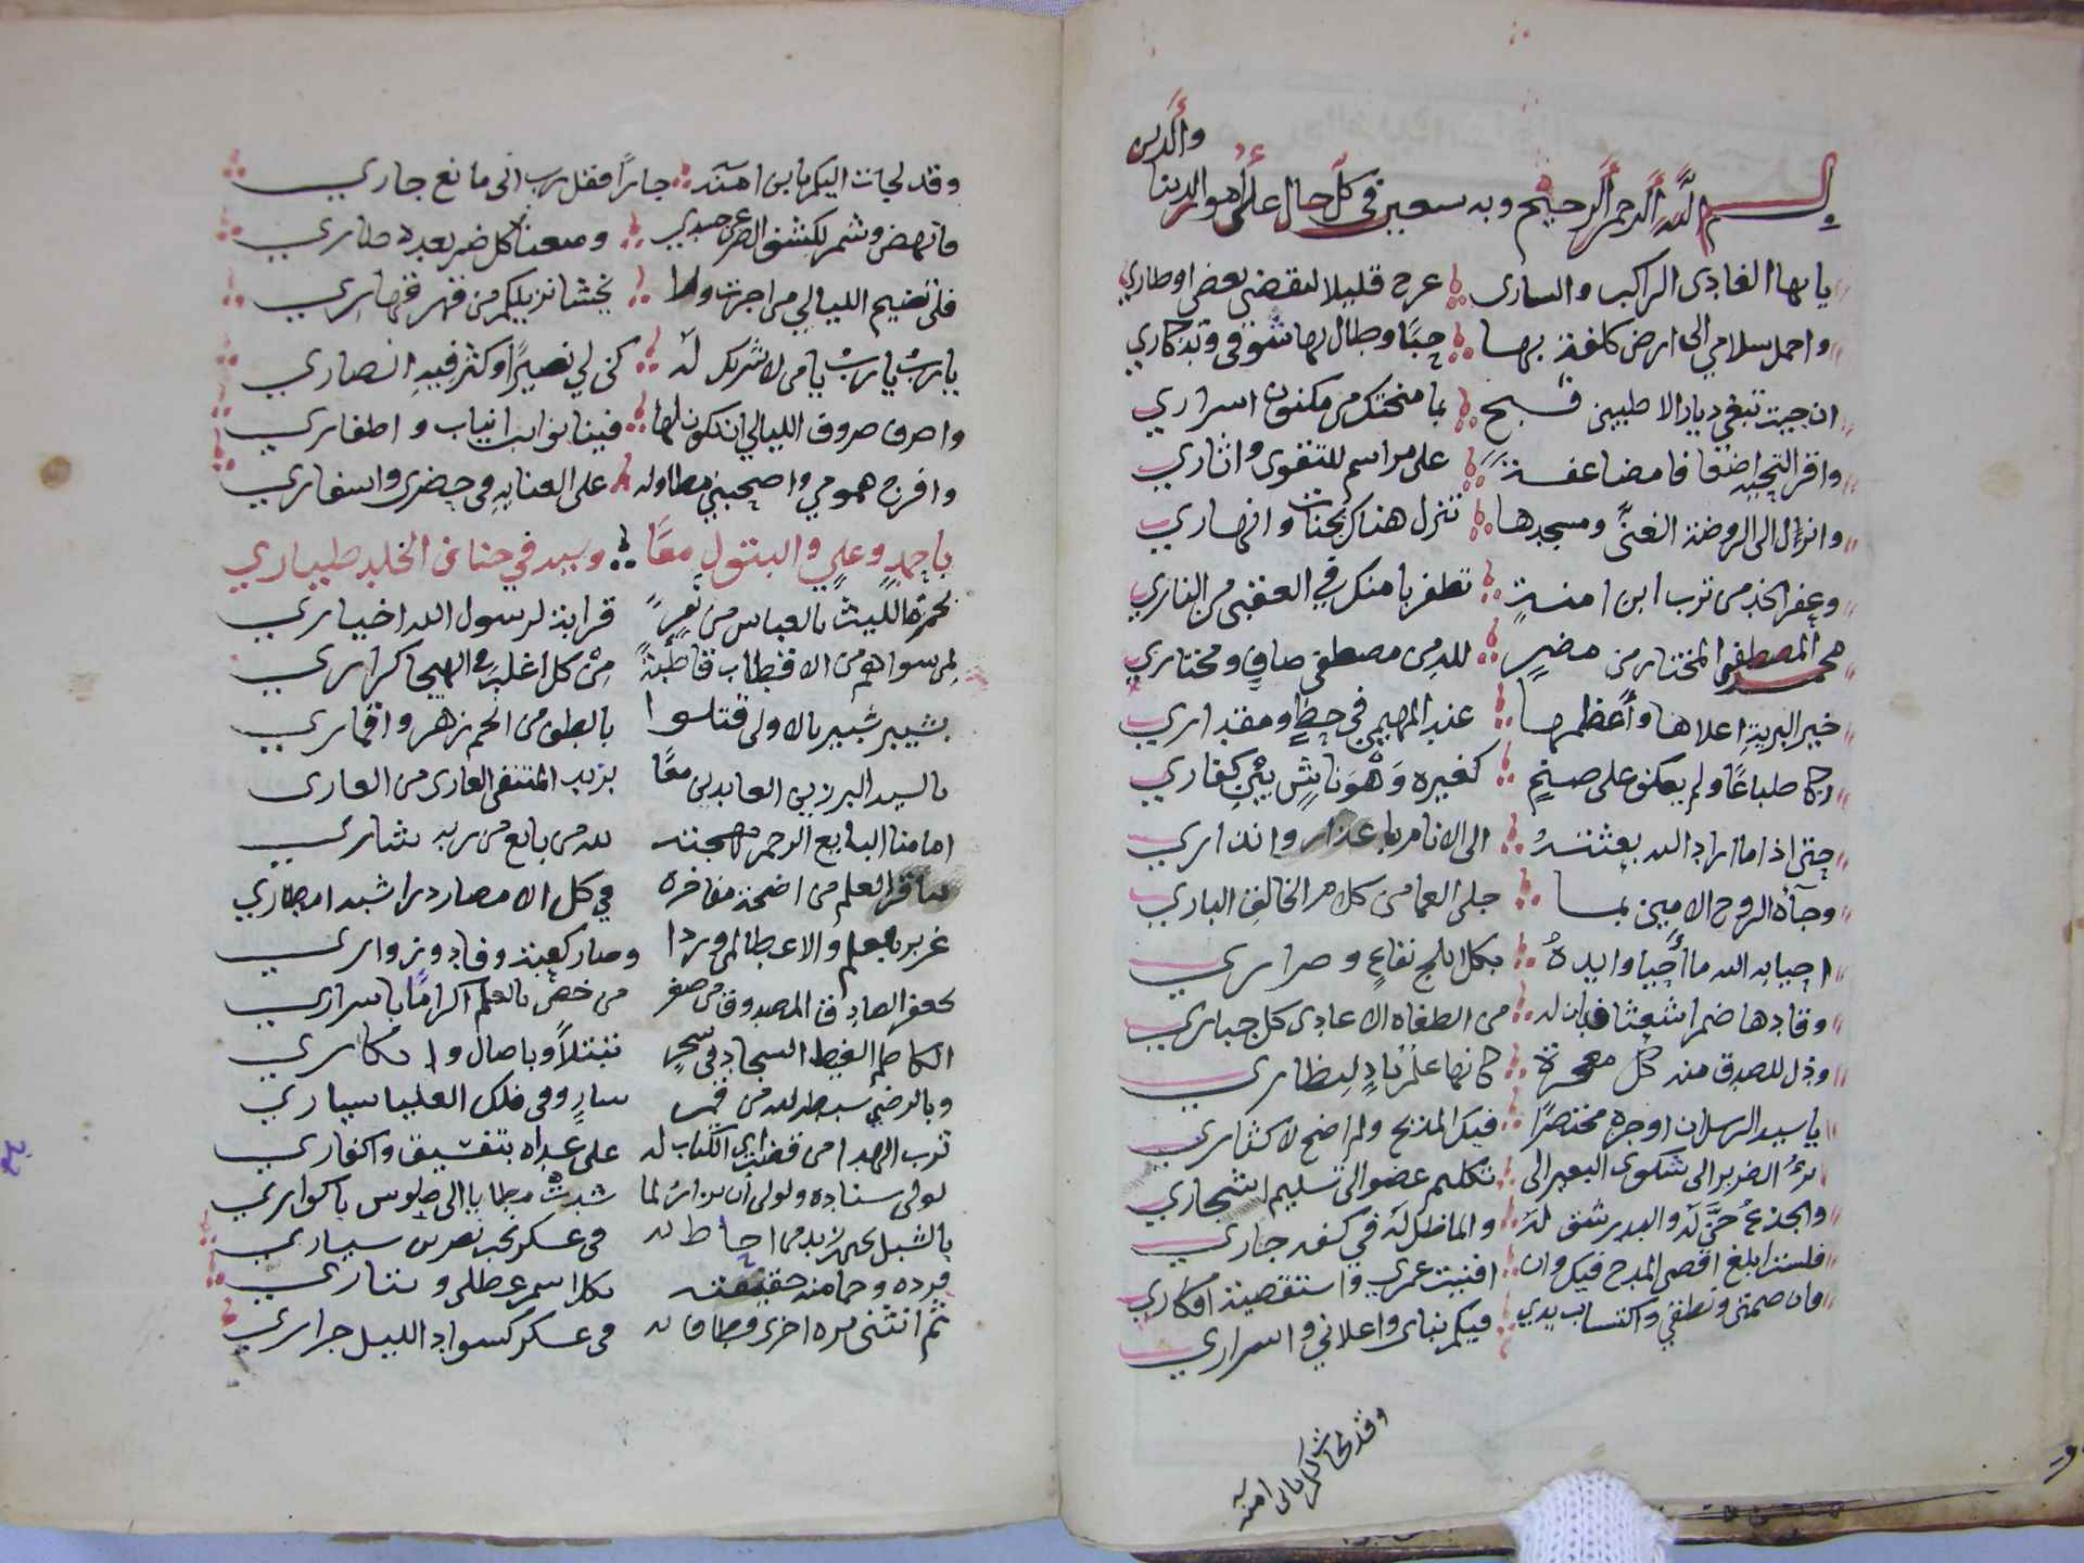 والدين
بسم الله الرحمن الرحيم وبه نستعين في كل حال على امور الدنيا
يا بها الغادي الراكب والساري عرج قليلا لتقضي بعض اوطاري
واحمل سلامي الى ارض كلفة بها حبًا وطال بها شوقي وتذكاري
ان جيت تبغي ديار الاطيبين فبح بما منحتك من مكنون اسراري
واقر التحيه اضعافا مضاعفة على مراسم للتقوى واثاري
وانزل الى الروضة الغنى ومسجدها تنزل هناك بجنات وانهاري
وعفر الخد من ترب ابن امنة تظفر بامنك في العقبى من الناري
محمد المصطفى المختار من مضرٍ لله من مصطفى صافٍ ومختاري
خير البرية اعلاها وأعظمها عند المهيمن في حظٍ ومقداري
زكا طباعًا ولم يعكف على صنمٍ كغيره وَهْوَ ناشٍ بين كفاري
حتى اذا ما اراد الله بعثتهُ الى الانام باعذار وانذاري
وجآءه الروح الامين بما جلى العما من كلام الخالق الباري
احيا به الله ما أحيا وايدهُ بكل ابلج نفاعٍ وضراري
وقادها ضمرا شعثا فدان له من الطغاه الاعادي كل جباري
ودل للصدق منه كل معجزة كانها علمٌ بادٍ لنظاري
يا سيد الرسلان اوجزه مختصرًا فيك المديح ولم اضح لاكثاري
برءُ الضرير الى شكوى البعير الى تكليم عضو الى تسليم اشجاري
والجذعُ حنَّ له والبدر شق لهُ والماء ظل له في كفه جاري
فلست ابلغ اقصى المدح فيك وان افنيت عمري واستقصيت افكاري
وان صمتي ونطقي واكتساب يدي فيكم بناي واعلاني واسراري
وقد لجات اليكم يابن امنه
وقد لجات اليكم يابن امنه جارًا فقل رب اني مانع جاري
فانهض وشمر لكشف الضر عن جسدي ومسعنا كل ضر بعده طاري
فلن تضيم الليالي من اجرت ولا يخشا نزيلكم من قهر قهاري
يا ربُ يا ربُ يا من لا شريك له كن لي نصيرًا وكثر فيه انصاري
واصرف صروف الليالي ان تكون لها فينا نوايب انياب واظفاري
وافرج همومي واصحبني مطاوله على العنايه في حضري واسفاري
باحمدٍ وعليٍ والبتول معًا وسيد في جنان الخلد طياري
بحمزة الليث بالعباس من نفرٍ قرابة لرسول الله اخياري
لمن سواهم من الاقطاب قاطبةً من كل اغلب في الهيجا كراري
بشيبر شبير بالاولى قتلوا بالطف من انجم زهر واقماري
بالسيد البر زين العابدين معًا بزيد المنتقى العاري من العاري
امامنا البايع الرحمن مهجته لله من بايع من ربه شاري
بباقر العلم من اضحت مفاخره في كل الامصار درا شبه امطاري
غرير بالعلم والاعطا لمن وردا وصار كعبة وفاد وزواري
بجعفر الصادق المصدوق من صغر من خص بالعلم اكرامًا باسراري
الكاظم الغيظ السجاد في سحرٍ تبتلاً وباصال وابكاري
وبالرضى سبط لله من قمر سارٍ وفي فلك العليا سياري
ترب الهدا من قضت اي الكتاب له على عداه بتفسيق واكفاري
لولى سناده ولولى ان يزار لما شدتْ مطايا الى طوس باكواري
بالشبل يحيى بن زيد من احاط به في عسكر لجب نصر بن سياري
فرده وحما منه حقيقته بكل اسمر عطلى وبتاري
ثم انثنى مره اخرى فطاف له في عسكر كسواد الليل جراري